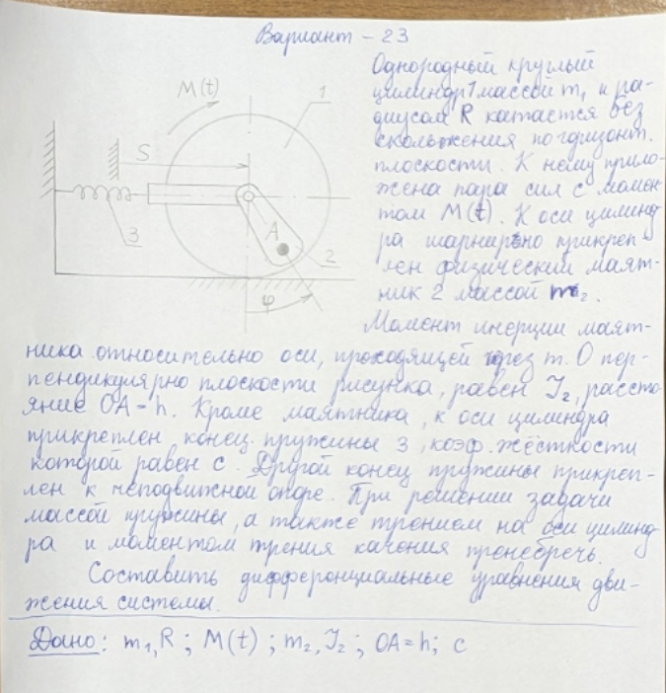 Вариант - 23
Однородный круглый
цилиндр 1 массой m₁ и ра-
диусом R катается без
скольжения по горизонт.
плоскости. К нему прило-
жена пара сил с момен
том M(t). К оси цилинд
ра шарнирно прикреп-
лен физический маят-
ник 2 массой m₂.
M(t)
1
S
3
A
2
φ
Момент инерции маят-
ника относительно оси, проходящей через т. О пер-
пендикулярно плоскости рисунка, равен J₂, рассто-
яние OA = h. Кроме маятника, к оси цилиндра
прикреплен конец пружины 3, коэф. жёсткости
которой равен c. Другой конец пружины прикреп-
лен к неподвижной опоре. При решении задачи
массой пружины, а также трением на оси цилинд
ра и моментом трения качения пренебречь.
Составить дифференциальные уравнения дви-
жения системы.
Дано: m₁, R ; M(t) ; m₂, J₂ ; OA = h; c